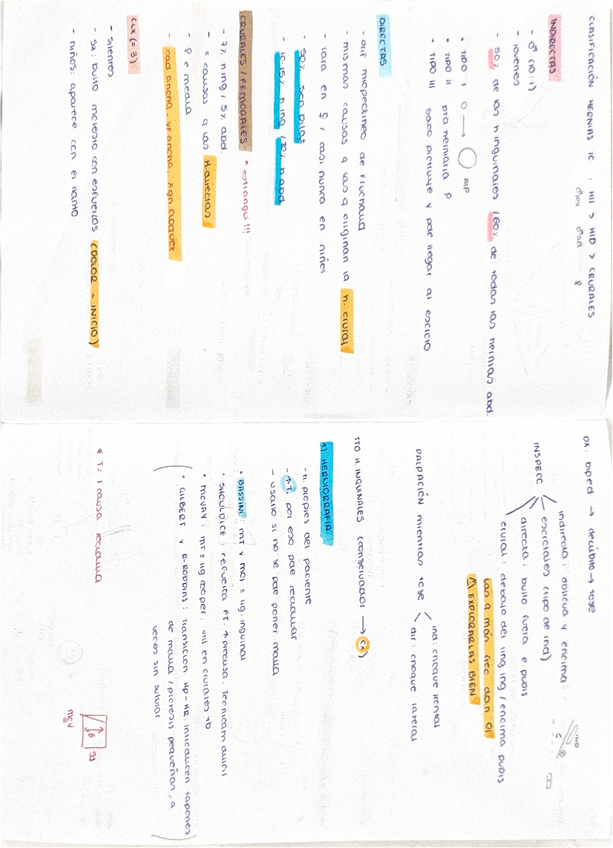 CLASIFICACIÓN HERNIAS IC : HII > HID > CRURALES
♂ jov ♂ an ♀
INDIRECTAS
- ♂ (10:1)
- jóvenes
- 50% de las h inguinales (60% de todas las hernias abd.
• TIPO I O → O AIP
• TIPO II pta herniaria ♀
• TIPO III saco protruye y pde llegar al escroto
DIRECTAS
- orif miopectíneo de Fruchaud
- mismas causas q las q originan la h. crural
- rara en ♀ / casi nunca en niños
- 50% son bilat
- 10-15% h ing / 20% h abd
CRURALES / FEMORALES * estrangul !!!
- 7% h ing, 5% abd
- = causas q las H directas.
- ♀ e media
- rad ancha, vf ancha, lgn cooper
CLX (= 3)
- silentes
- sx: bulto molesto con esfuerzos (DOLOR = INICIO)
- niños: aparece con el llanto
DX: biped → decúbito → tose
INSPECC
indirecta: oblicua y encima
escrotales (tipo de ind)
directa: bulto fuera e. pubis
crural: debajo del lig ing / encima pubis
las q más frec dan OI
EXPLORARLAS BIEN
PALPACIÓN mientras tose
ind: choque frontal
dir: choque lateral
TTO H INGUINALES (conservador → CX)
1) HERNIORRAFIA
- h. propios del paciente
- ↑T, por eso pde recidivar
- usarlo si no se pde poner malla
• BASSINI: MT y MOI = lig. inguinal
• SHOULDICE: refuerza FT. ↑ precisa. Técnicam difícil
• MCVAY: MT = lig cooper. util en crurales tb
(• GILBERT y R-ROBBINS: transición HP-HR. Introducen tapones
de malla / prótesis pequeñas, a
veces sin suturar)
* T = 1 causa recidiva